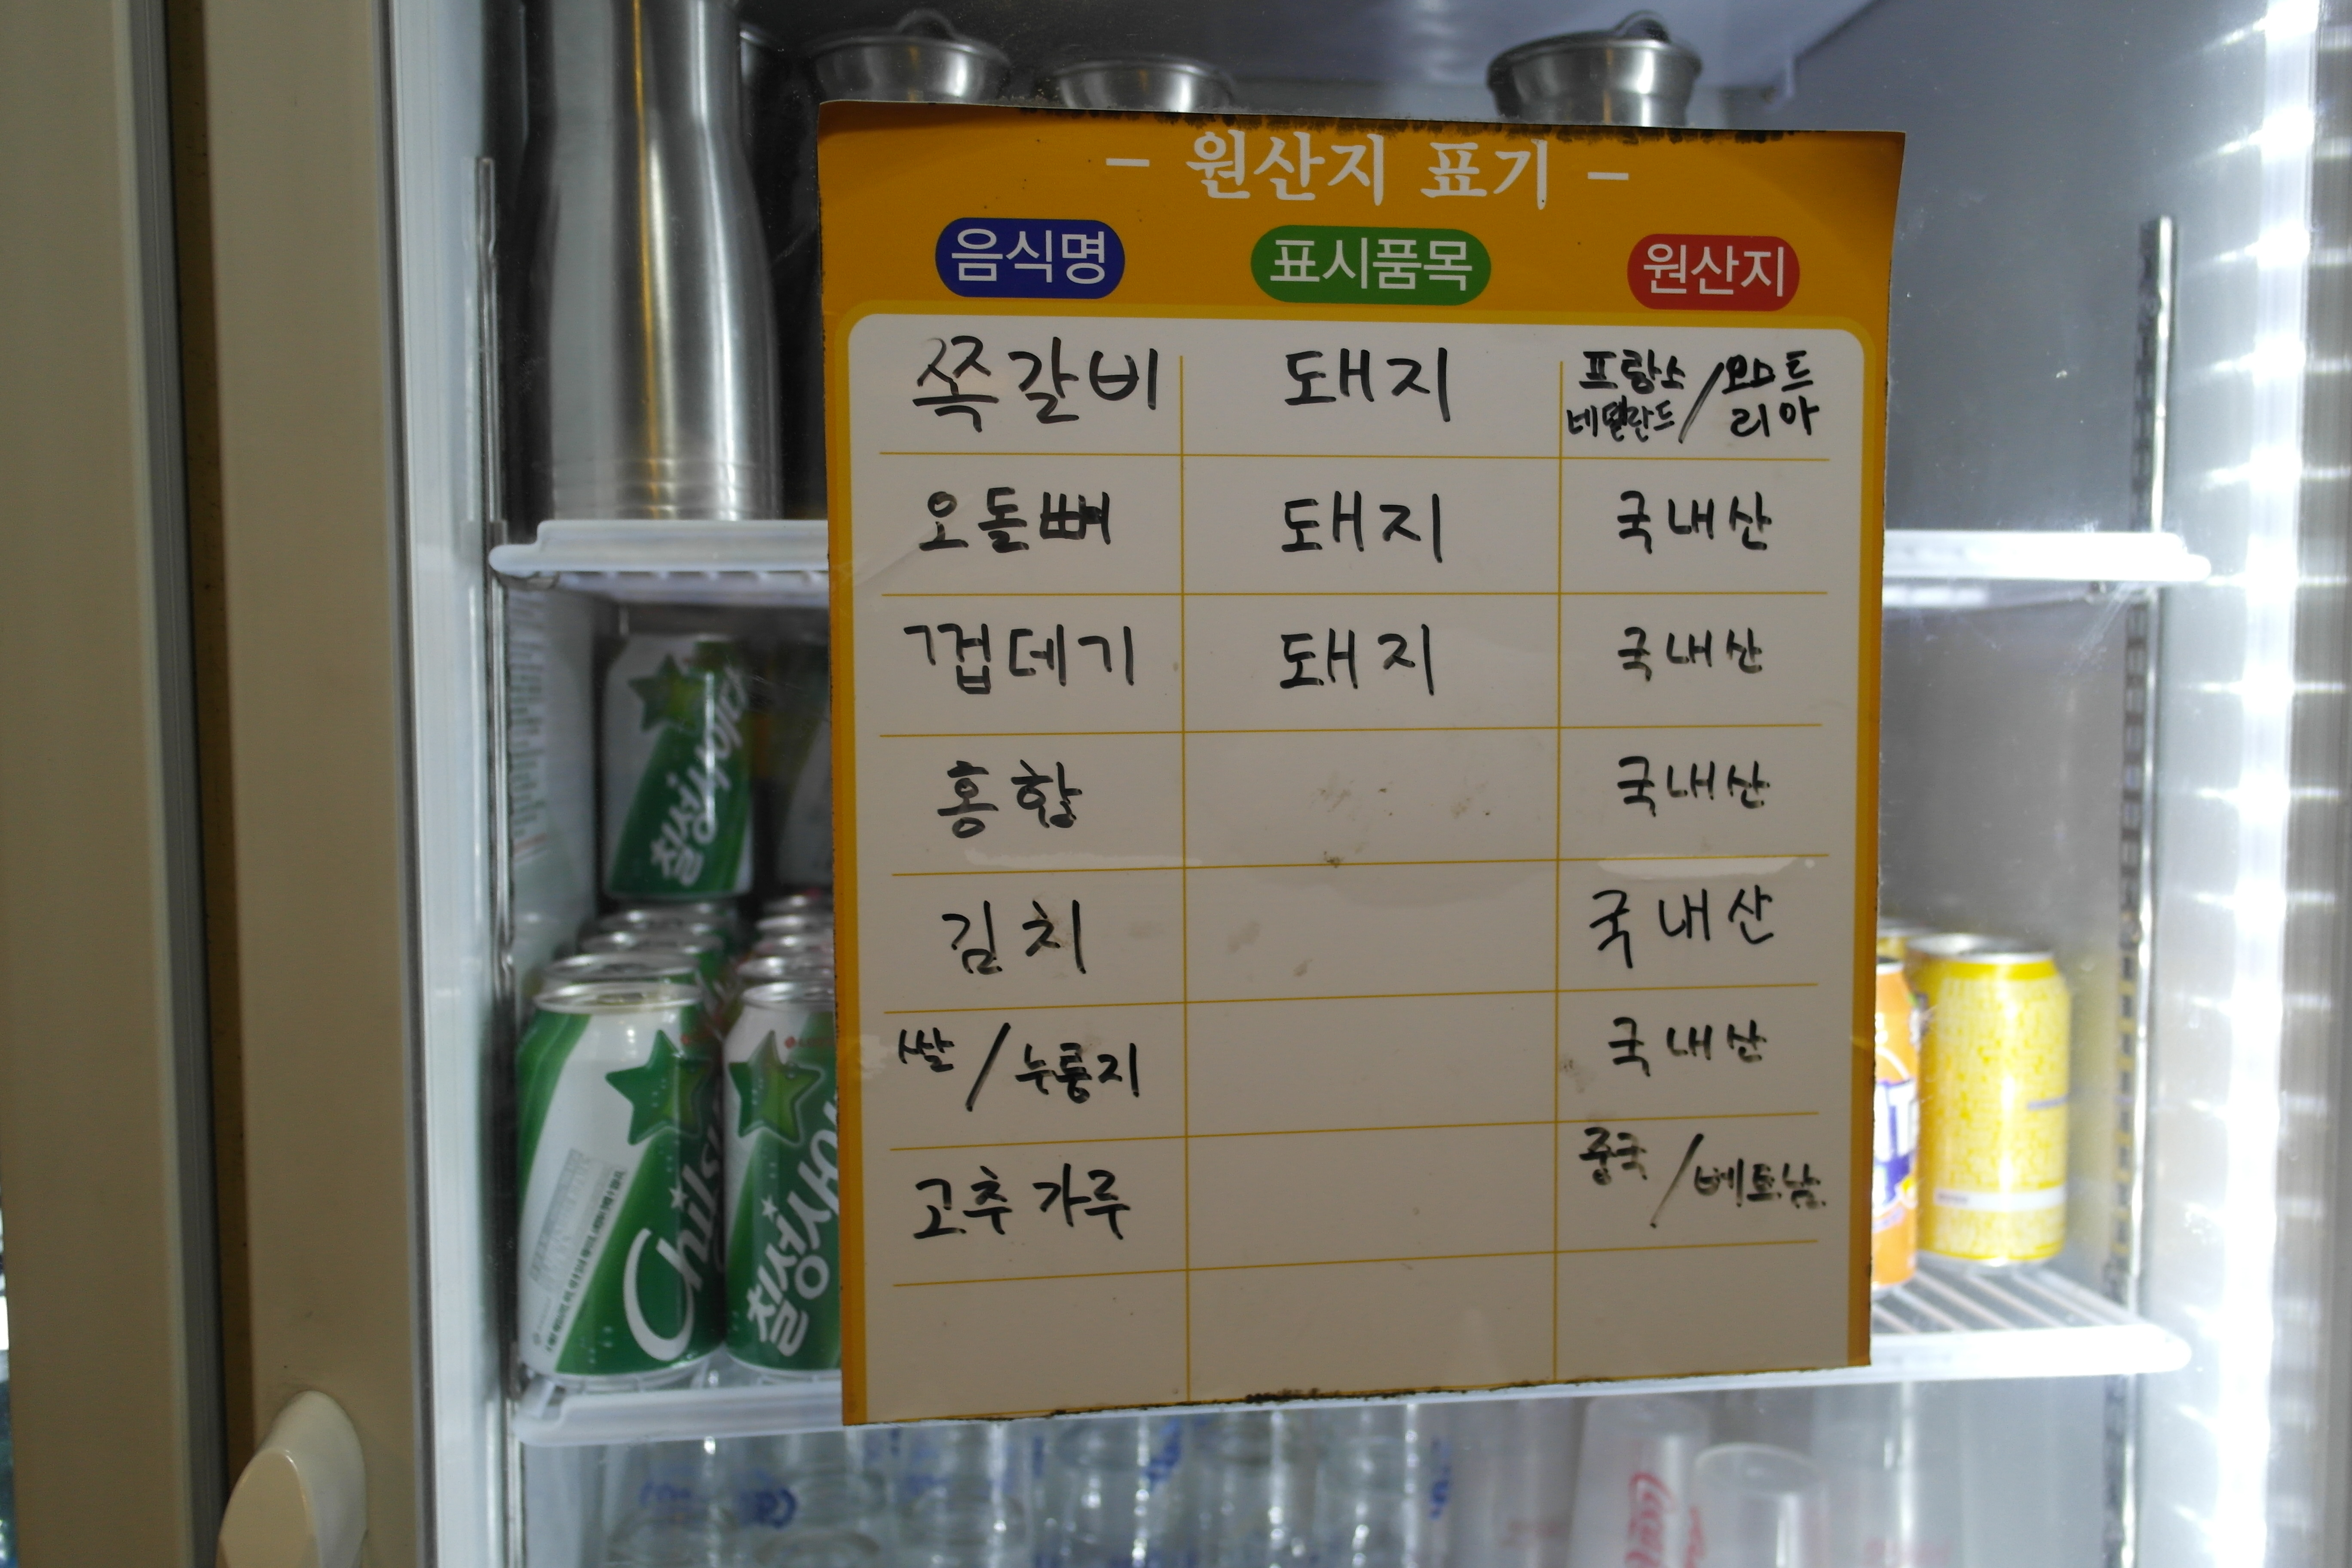 - 원산지 표기 -
음식명 표시품목 원산지
쪽갈비 돼지 프랑스 네덜란드 / 오스트리아
오돌뼈 돼지 국내산
껍데기 돼지 국내산
홍합 국내산
김치 국내산
쌀 / 누룽지 국내산
고추가루 중국 / 베트남
칠성사이다
Chilsung
칠성사이